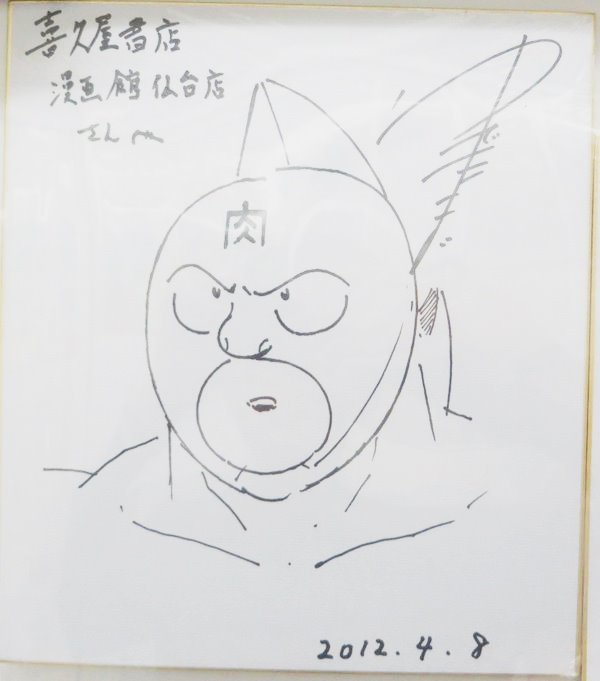 喜久屋書店
漫画館仙台店
さん江
肉
2012.4.8